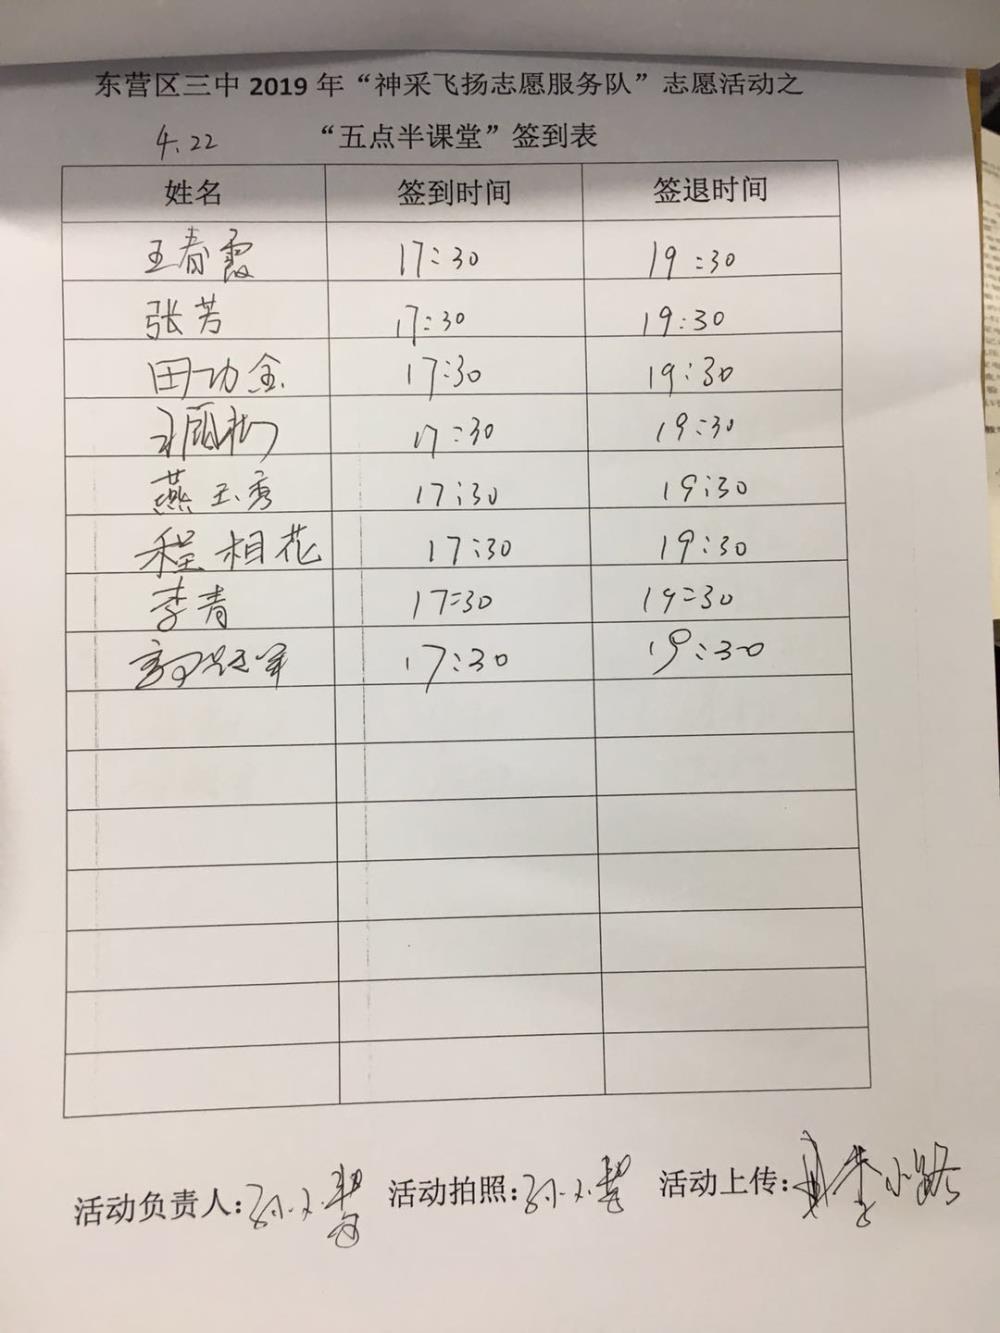 东营区三中 2019 年“神采飞扬志愿服务队”志愿活动之
4.22 “五点半课堂”签到表
姓名 签到时间 签退时间
王春霞 17:30 19:30
张芳 17:30 19:30
田功金 17:30 19:30
17:30 19:30
燕玉秀 17:30 19:30
程相花 17:30 19:30
李青 17:30 19:30
17:30 19:30
活动负责人: 活动拍照: 活动上传:李小路